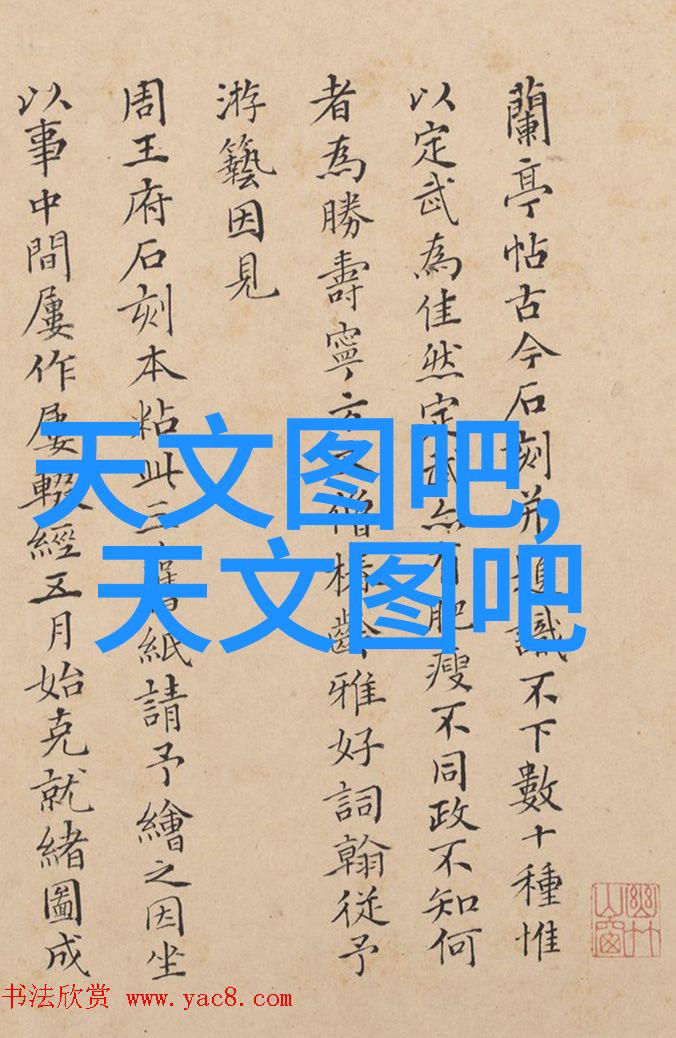 蘭亭帖古今石刻并題識不下數十種惟
以定武為佳然定武亦有肥瘦不同政不知何
者為勝壽寧方丈僧 齡雅好詞翰從予
游藝因見
周王府石刻本粘此三 紙請予繪之因坐
以事中間屢作屢輟經五月始克就緒圖成
天文图吧,
天文图吧
书法欣赏 www.yac8.com